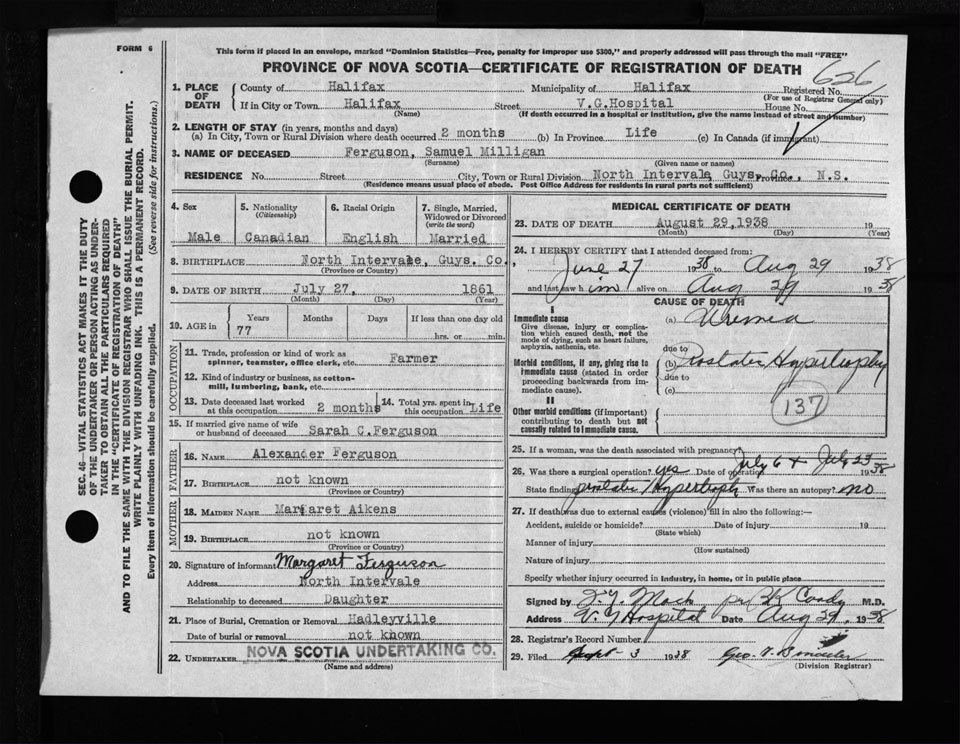 FORM 6
This form if placed in an envelope, marked "Dominion Statistics—Free, penalty for improper use $300," and properly addressed will pass through the mail "FREE"
PROVINCE OF NOVA SCOTIA—CERTIFICATE OF REGISTRATION OF DEATH
626
1. PLACE OF DEATH County of Halifax Municipality of Halifax Registered No.
(For use of Registrar General only)
If in City or Town Halifax Street V.G.Hospital House No.
(Name) (If death occurred in a hospital or institution, give the name instead of street and number)
2. LENGTH OF STAY (in years, months and days)
(a) In City, Town or Rural Division where death occurred 2 months (b) In Province Life (c) In Canada (if immigrant)
3. NAME OF DECEASED Ferguson, Samuel Milligan
(Surname) (Given name or names)
RESIDENCE No. Street City, Town or Rural Division North Intervale, Guys. Co., Province N.S.
(Residence means usual place of abode. Post Office Address for residents in rural parts not sufficient)
4. Sex Male
5. Nationality (Citizenship) Canadian
6. Racial Origin English
7. Single, Married, Widowed or Divorced (write the word) Married
8. BIRTHPLACE North Intervale, Guys. Co.,
(Province or Country)
9. DATE OF BIRTH July 27, 1861
(Month) (Day) (Year)
10. AGE in Years Months Days If less than one day old
77 hrs. or min.
OCCUPATION
11. Trade, profession or kind of work as spinner, teamster, office clerk, etc. Farmer
12. Kind of industry or business, as cotton-mill, lumbering, bank, etc.
13. Date deceased last worked at this occupation 2 months
14. Total yrs. spent in this occupation Life
15. If married give name of wife or husband of deceased Sarah C. Ferguson
FATHER
16. NAME Alexander Ferguson
17. BIRTHPLACE not known
(Province or Country)
MOTHER
18. MAIDEN NAME Margaret Aikens
19. BIRTHPLACE not known
(Province or Country)
20. Signature of informant Margaret Ferguson
Address North Intervale
Relationship to deceased Daughter
21. Place of Burial, Cremation or Removal Hadleyville
Date of burial or removal not known
22. UNDERTAKER NOVA SCOTIA UNDERTAKING CO.
(Name and address)
MEDICAL CERTIFICATE OF DEATH
23. DATE OF DEATH August 29, 1938 19
(Month) (Day) (Year)
24. I HEREBY CERTIFY that I attended deceased from:
June 27 1938 to Aug 29 1938
and last saw him alive on Aug 29 1938
CAUSE OF DEATH
I
Immediate cause (a) Uremia
Give disease, injury or complication which caused death, not the mode of dying, such as heart failure, asphyxia, asthenia, etc.
due to
Morbid conditions, if any, giving rise to immediate cause (stated in order proceeding backwards from immediate cause).
(b) Prostatic Hypertrophy
due to
(c)
137
II
Other morbid conditions (if important) contributing to death but not causally related to immediate cause.
25. If a woman, was the death associated with pregnancy?
26. Was there a surgical operation? yes Date of operation July 6 + July 23 1938
State finding prostatic Hypertrophy Was there an autopsy? no
27. If death was due to external causes (violence) fill in also the following:—
Accident, suicide or homicide? Date of injury 19
(State which)
Manner of injury
(How sustained)
Nature of injury
Specify whether injury occurred in industry, in home, or in public place
Signed by M.D.
Address V G Hospital Date Aug 29, 1938
28. Registrar's Record Number
29. Filed Sept 3 1938 Geo.
(Division Registrar)
SEC. 46—VITAL STATISTICS ACT MAKES IT THE DUTY
OF THE UNDERTAKER OR PERSON ACTING AS UNDER-
TAKER TO OBTAIN ALL THE PARTICULARS REQUIRED
IN THE "CERTIFICATE OF REGISTRATION OF DEATH"
AND TO FILE THE SAME WITH THE DIVISION REGISTRAR WHO SHALL ISSUE THE BURIAL PERMIT.
WRITE PLAINLY WITH UNFADING INK. THIS IS A PERMANENT RECORD.
Every item of information should be carefully supplied. (See reverse side for instructions.)